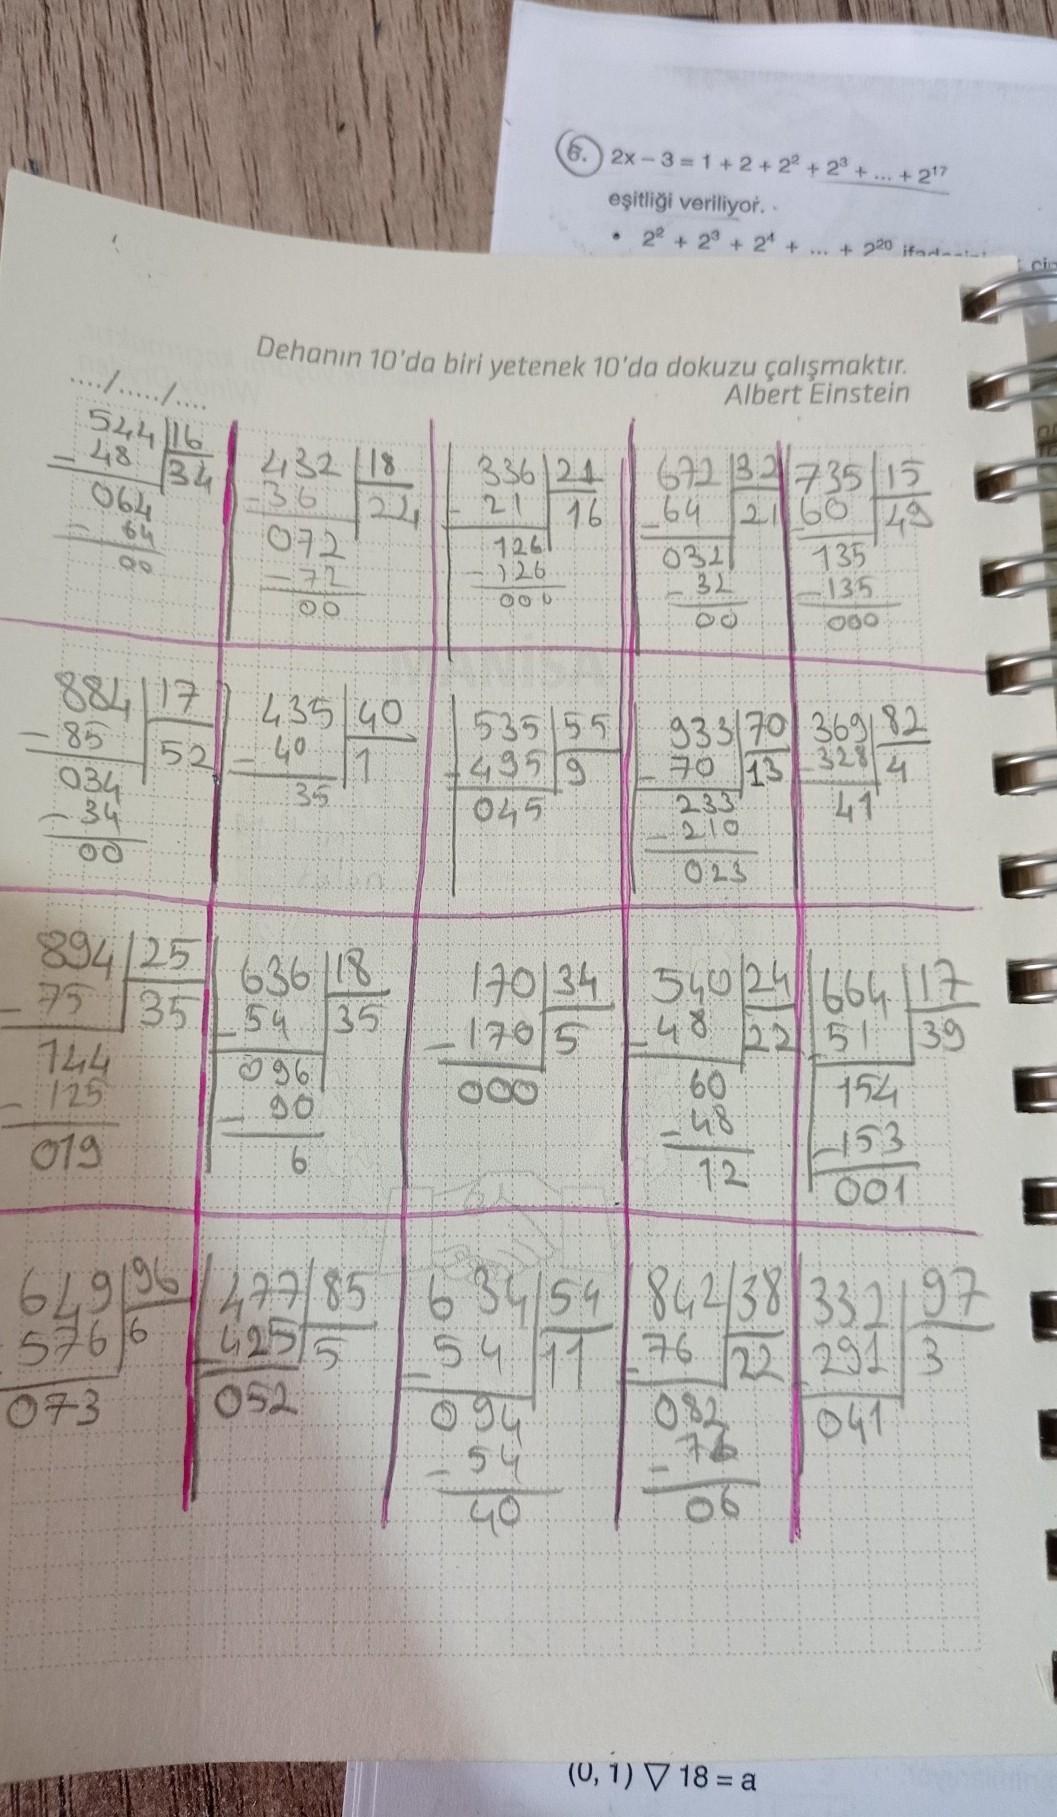 6. 2x – 3 = 1 + 2 + 2² + 2³ + ... + 2¹⁷
eşitliği veriliyor.
• 2² + 2³ + 2⁴ + ... + 2²⁰
Dehanın 10'da biri yetenek 10'da dokuzu çalışmaktır.
Albert Einstein
..../...../....
544 16
- 48 34
064
- 64
00
432 18
- 36 24
072
- 72
00
336 21
- 21 16
126
- 126
000
672 32
- 64 21
032
- 32
00
735 15
- 60 49
135
- 135
000
884 17
- 85 52
034
- 34
00
435 40
- 40 1
35
535 55
- 495 9
045
933 70
- 70 13
233
- 210
023
369 82
- 328 4
41
894 25
- 75 35
144
- 125
019
636 18
- 54 35
096
- 90
6
170 34
- 170 5
000
540 24
- 48 22
60
- 48
12
664 17
51 39
154
- 153
001
649 96
576 6
073
477 85
- 425 5
052
634 54
- 54 11
094
- 54
40
842 38
- 76 22
082
- 76
06
332 97
291 3
041
(0, 1) ▽ 18 = a